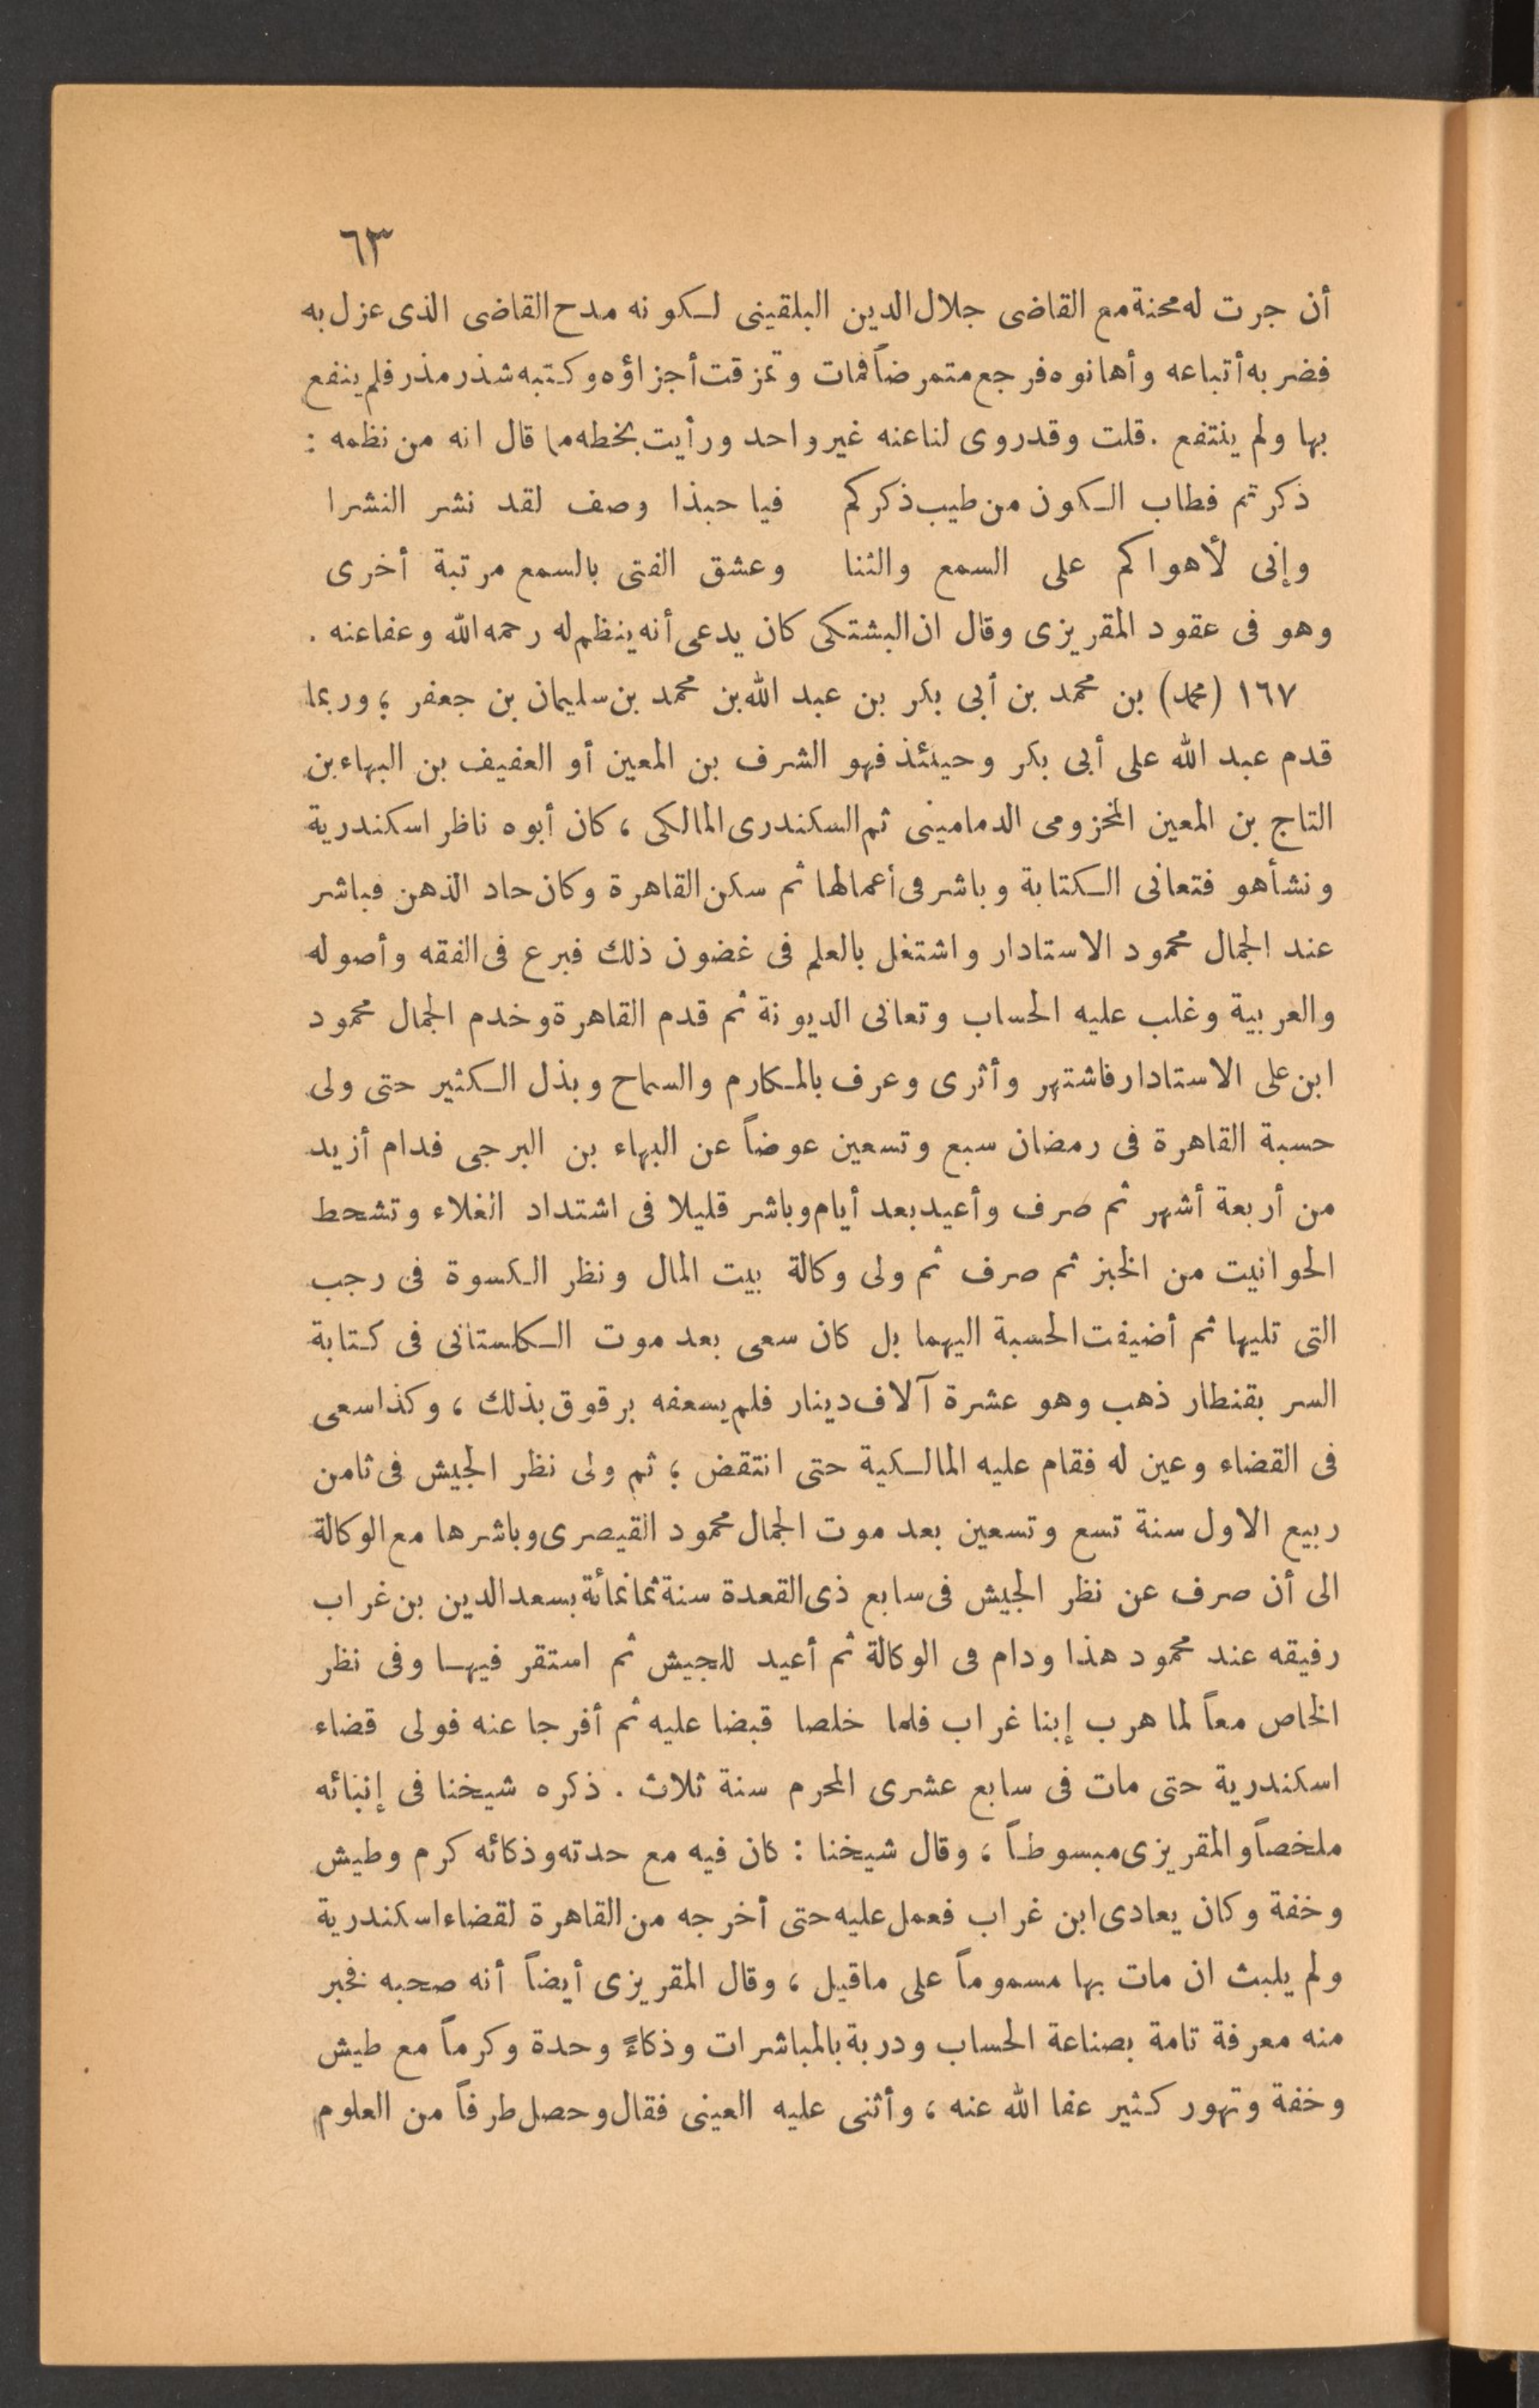 ٦٣
أن جرت له محنة مع القاضى جلال الدين البلقينى لكونه مدح القاضى الذى عزل به
فضربه أتباعه وأهانوه فرجع متمرضاً فمات وتمزقت أجزاؤه وكتبه شذر مذر فلم ينفع
بها ولم ينتفع . قلت وقد روى لنا عنه غير واحد ورأيت بخطه مما قال انه من نظمه :
ذكرتم فطاب الكون من طيب ذكركم فيا حبذا وصف لقد نشر النشرا
وإنى لأهواكم على السمع والثنا وعشق الفتى بالسمع مرتبة أخرى
وهو فى عقود المقريزى وقال ان البشتكى كان يدعى أنه ينظم له رحمه الله وعفا عنه .
١٦٧ (محمد) بن محمد بن أبى بكر بن عبد الله بن محمد بن سليمان بن جعفر ؛ وربما
قدم عبد الله على أبى بكر وحينئذ فهو الشرف بن المعين أو العفيف بن البهاء بن
التاج بن المعين المخزومى الدمامينى ثم السكندرى المالكى ، كان أبوه ناظر اسكندرية
ونشأ هو فتعانى الكتابة وباشر فى أعمالها ثم سكن القاهرة وكان حاد الذهن فباشر
عند الجمال محمود الاستادار واشتغل بالعلم فى غضون ذلك فبرع فى الفقه وأصوله
والعربية وغلب عليه الحساب وتعانى الديونة ثم قدم القاهرة وخدم الجمال محمود
ابن على الاستادار فاشتهر وأثرى وعرف بالمكارم والسماح وبذل الكثير حتى ولى
حسبة القاهرة فى رمضان سبع وتسعين عوضاً عن البهاء بن البرجى فدام أزيد
من أربعة أشهر ثم صرف وأعيد بعد أيام وباشر قليلا فى اشتداد الغلاء وتشحط
الحوانيت من الخبز ثم صرف ثم ولى وكالة بيت المال ونظر الكسوة فى رجب
التى تليها ثم أضيفت الحسبة اليهما بل كان سعى بعد موت الكلستانى فى كتابة
السر بقنطار ذهب وهو عشرة آلاف دينار فلم يسعفه برقوق بذلك ، وكذا سعى
فى القضاء وعين له فقام عليه المالكية حتى انتقض ؛ ثم ولى نظر الجيش فى ثامن
ربيع الاول سنة تسع وتسعين بعد موت الجمال محمود القيصرى وباشرها مع الوكالة
الى أن صرف عن نظر الجيش فى سابع ذى القعدة سنة ثمانمائة بسعد الدين بن غراب
رفيقه عند محمود هذا ودام فى الوكالة ثم أعيد للجيش ثم استقر فيها وفى نظر
الخاص معاً لما هرب إبنا غراب فلما خلصا قبضا عليه ثم أفرجا عنه فولى قضاء
اسكندرية حتى مات فى سابع عشرى المحرم سنة ثلاث . ذكره شيخنا فى إنبائه
ملخصاً والمقريزى مبسوطاً ، وقال شيخنا : كان فيه مع حدته وذكائه كرم وطيش
وخفة وكان يعادى ابن غراب فعمل عليه حتى أخرجه من القاهرة لقضاء اسكندرية
ولم يلبث ان مات بها مسموماً على ماقيل ، وقال المقريزى أيضاً أنه صحبه فخبر
منه معرفة تامة بصناعة الحساب ودربة بالمباشرات وذكاءً وحدة وكرماً مع طيش
وخفة وتهور كثير عفا الله عنه ، وأثنى عليه العينى فقال وحصل طرفاً من العلوم